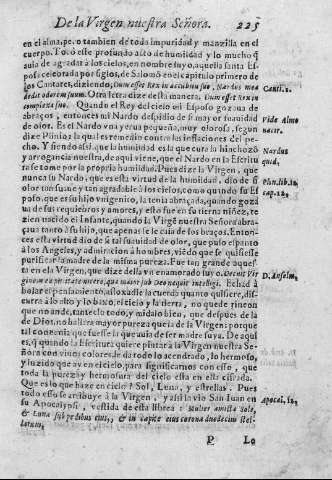 De la Virgen nuestra Señora. 225
en el alma, pero tambien de toda impuridad y manzilla en el
cuerpo. Tocó este profundo acto de humildad y lo mucho que
auia de agradar à los cielos, en nombre suyo, aquella santa Es
posa celebrada por siglos, de Salomõ en el capitulo primero de
los Cantares, diziendo, Dum esset Rex in accubitu suo, Nardus mea
dedit odorem suum. Otra letra dize desta manera, Dum esset Rex in
complexu suo. Quando el Rey del cielo mi Esposo gozaua de
abraços, entonces mi Nardo despidio de si mayor suauidad
de olor. Es el Nardo vna yerua pequeña, muy olorosa, segun
dize Plinio; la qual es remedio contra las inflaciones del pe-
cho. Y siendo assi, que la humildad es la que cura la hinchazõ
y arrogancia nuestra, de aqui viene, que el Nardo en la Escritu
ra se tome por la propria humildad. Pues dize la Virgen, que
nunca su Nardo, que es esta virtud de la humildad, dio de si
olor tan suaue y tan agradable à los cielos, como quando su Es
poso, que es su hijo vnigenito, la tenia abraçada, quando goza
ua de sus requiebros y amores, y esto fue en su tierna niñez, re
zien nacido el Infante, quando la Virgẽ nuestra Señora abra-
çaua tanto à su hijo, que apenas se le caia de los braços. Enton-
ces esta virtud dio de si tal suauidad de olor, que puso espanto
à los Angeles, y admiracion à hombres, viẽdo que se quisiesse
purificar la madre de la misma pureza. Fue tan grande aques-
ta en la Virgen, que dize della vn enamorado suyo. Decuit Vir
ginem ea puritate nitere, qua maior sub Deo nequit intelligi. Echad à
bolar el pensamiento, afloxadle la cuerda quanto quisiere, dis-
curra à lo alto y lo baxo, el cielo y la tierra, no quede rincon
que no ande, tantee lo todo, y midalo bien, que despues de la
de Dios, no hallarà mayor pureza que la de la Virgen: porque
tal conuenia que fuesse la que auia de ser madre suya. De aqui
es, que quando la Escritura quiere pintar à la Virgen nuestra Se
ñora con viuos colores, le da todo lo acendrado, lo hermoso,
y luzido que ay en el cielo, para significarnos con esso, que
toda la pureza y hermosura del cielo esta en ella cifrada.
Que es lo que haze en cielo? Sol, Luna, y estrellas. Pues
todo esso se atribuye à la Virgen, y assi la vio San Iuan en
su Apocalypsi, vestida de esta librea: Mulier amicta sole,
& Luna sub pedibus eius, & in capite eius corona duodecim Stel-
larum.
Cant. 1.
Vide Almo
nacir.
Nardus
quid.
Plin. lib. 12.
cap. 12.
D. Anselm.
Apocal. 12.
P Lo